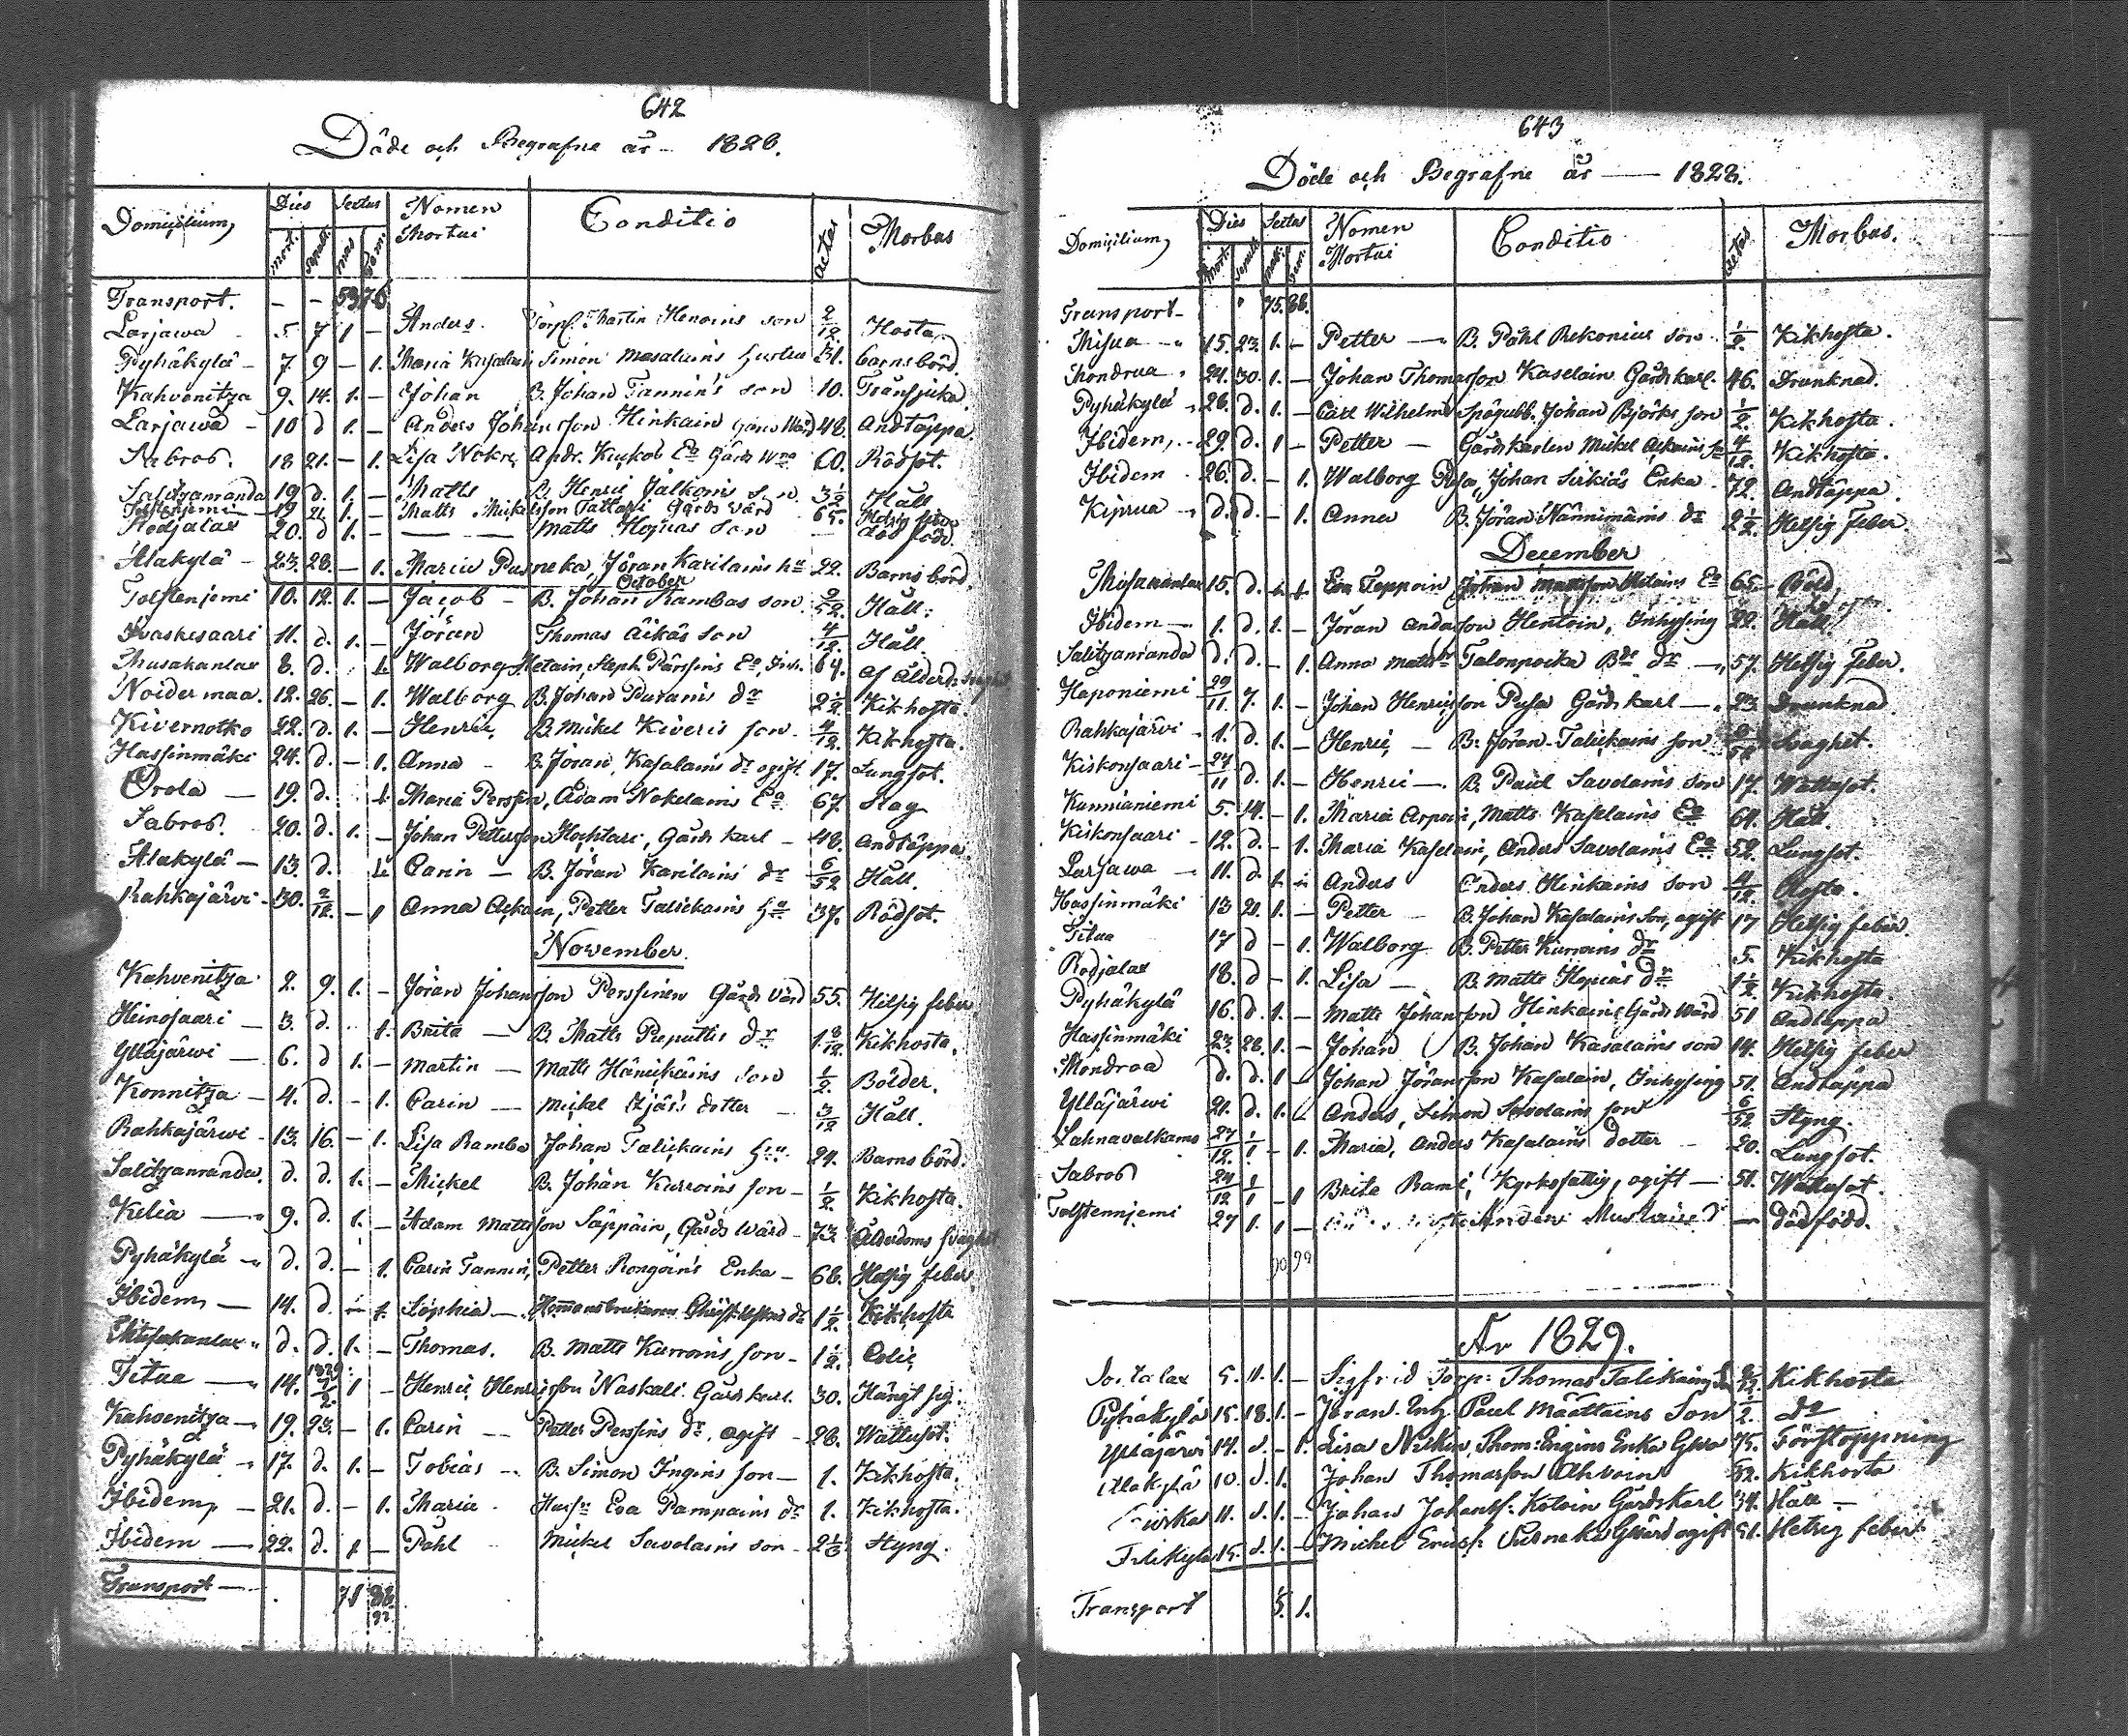 642
Döde och Begrafne år - 1828.
Domicilium, Dies Sextus Nomen Mortui Conditio Aetas Morbus
mort. sepult. mas fem.
Transport. - - 53 76
Larjawa - 5 7 1 - Anders. Torp. Martin Henoins son 2/12 Hosta.
Pyhäkylä - 7. 9 - 1. Maria Kasalain Simon Masalains hustru 31. Barnsbörd.
Kahvenitza 9. 14. 1. - Johan B. Johan Tannin's son 10. Tränsjuka.
Larjawa - 10 d 1. - Anders Johansson Hinkain Gårds Wärd 48. Andtäppa.
Sabros. 18 21. - 1. Lisa Nokre, Andr. Kuckos Ea Gårds Wna 60. Rödsot.
Salitzanranda 19 d. 1. - Matts B. Henric Jalkoins son 3 1/2 Håll
Tolstenjemi - 19 21 1. - Matts Mickelsson Tattari Gårds värd 65. Hetsig feber
Rodjalax 20. d 1. - — — Matts Hopias son - död född.
Alakylä - 23. 28. - 1. Maria Pusneka, Jöran Karilains hu 22. Barnsbörd.
October
Tolstenjemi 10. 12. 1. - Jacob - B. Johan Rambas son 2/52 Håll.
Kraskesaari 11. d. 1. - Jöran Thomas Äikäs son 4/12 Håll.
Musakanlax 8. d. 1. Walborg Hetain, Steph. Pärssins Ea, Inh. 64. Af Ålderd: svaghet
Noidermaa. 12. 26. - 1. Walborg B. Johan Puranis dr 2 1/2 Kikhosta.
Kivernotko 22. d. 1. - Henric, B. Mickel Kiveris son 4/12 Kikhosta.
Hassinmäki 24. d. - 1. Anna - B. Jöran, Kasalains dr ogift. 17. Lungsot.
Orola — 19. d. 1. Maria Perssin, Adam Nokelains Ea 67. Slag
Sabros. 20. d. 1. - Johan Pettersson Hochtari, Gårds karl - 48. Andtäppa.
Alakylä — 13. d. 1. Carin — B. Jöran Karilains dr 6/52 Håll.
Rahkajärvi - 30. 2/12. - 1 Anna Ackain, Petter Talickains Ha 37. Rödsot.
November.
Kahvenitza 2. 9. 1. - Jöran Johansson Perssinen Gårds Värd 55. Hetsig feber
Heinosaari - 3. d. 1. Brita — B. Matts Preputtis dr 1 8/12. Kikhosta.
Ylläjärwi - 6. d 1. - Martin — Matts Hänickäins son 1/2. Bölder.
Konnitza - 4. d. - 1. Carin — Mickel Kjäs's dotter 3/12 Håll.
Rahkajärwi - 13. 16. - 1. Lisa Ramba Johan Talickains Hru 24. Barnsbörd.
Salitzanranda. d. d. 1. - Mickel B. Johan Kurroins son - 1/2. Kikhosta.
Kelia — 9. d. 1. - Adam Mattsson Säppäin, Gårds Wärd - 73. Ålderdoms svaghet
Pyhäkylä - d. d. - 1. Carin Tannin, Petter Rongoin's Enka - 68. Hetsig feber
Ibidem, - 14. d. - 1. Sophia — Hommansbrukaren dr 1 1/2. Kikhosta
d. d. 1. - Thomas. B. Matts Kurroins son - 1 1/2. Colic
Titua — 14. 1829 1 - Henric Henricsson Naskali Gårds karl. 30. Hängt sig.
Kahvenitza - 19. 23. - 1. Carin — Petter Perssins dr, ogift - 28. Wattusot.
Pyhäkylä - 17. d. 1. - Tobias - B. Simon Ingins son - 1. Kikhosta.
Ibidem, - 21. d. - 1. Maria - Eva Pampains dr 1. Kikhosta.
Ibidem — 22. d. 1 - Påhl Mickel Savolains son - 2 1/6 Styng.
Transport — 71 86.
92.
643
Döde och Begrafne år — 1828.
Domicilium, Dies Sextus Nomen Mortui Conditio Aetas Morbus.
Mort. Sepult. Mas. Fem.
Transport - 75. 86.
Misua - 15. 23. 1. - Petter — B. Påhl Rekonius son 1/2. Kikhosta.
Mondrua - 24. 30. 1. - Johan Thomasson Kaselain Gårdskarl. 46. Drunknad.
Pyhäkylä - 26. d. 1. - Carl Wilhelm Spögubb. Johan Björks son 1/2. Kikhosta.
Ibidem, - 29. d. 1 - Petter — Gårdskarlen Mickel Ackains son 4/12. Kikhosta.
Ibidem - 26. d. - 1. Walborg Pusa, Johan Sirkiäs Enka 72. Andtäppa.
Kiprua - d. d. - 1. Anna B. Jöran Nännimäins dr 2 1/2. Hetsig Feber
December
15. d. Eva Teppoin Johan Mattsson Ea 65 - Böld
Ibidem — 1. d. 1. - Jöran Andersson Hentoin, Inhysing 22. Håll
Salitzanranda d. d. - 1. Anna Mattsdr Talonpoika Bds dr - 57. Hetsig Feber.
Haponiemi 29/11 7. 1. - Johan Henricsson Pusa Gårds karl — 23. Drunknad.
Rahkajärvi - 1. d. 1. - Henric, - B. Jöran Talickains son Svaghet.
Kiskonsaari - 27/11 d. 1. - Henric — B. Paul Savolains son 17. Wattusot.
Kunnianiemi 5. 14. - 1. Maria Arponi, Matts Kaselains Ea 64. Håll.
Kiskonsaari - 12. d. - 1. Maria Kaselain, Anders Savolains Ea 52. Lungsot.
Larjawa - 11. d. 1. - Anders Enders Hinkains son 4/12. Hosta.
Hassinmäki 13 21. 1. - Petter - B. Johan Kasalains son, ogift 17 Hetsig feber.
Titua 17 d - 1. Walborg B. Petter Kurroins dr 5. Kikhosta
Rodjalax 18. d - 1. Lisa — B. Matts Hopias dr 1 1/2. Kikhosta.
Pyhäkylä 16. d. 1. - Matts Johansson Hinkain Gårds Wärd 51 Andtäppa
Hassinmäki 23. 28. 1. - Johan B. Johan Kasalains son 14. Hetsig feber
Mondroa d. d. 1 - Johan Jöransson Kasalain, Inhysing 51. Andtäppa
Ylläjärwi 21. d. 1. - Anders, Simon Savolains son 6/52 Styng.
Lahnavalkama 27/12. 1/1 - 1. Maria, Anders Kasalains dotter - 20. Lungsot.
Sabros 24/12 1/1 - 1 Brita Rami, Kyrksfattig, ogift — 51. Wattusot.
Tolstennjemi 27 1. 1 - — dödfödd.
90 92
År 1829.
5. 11. 1. - Sigfrid Torp: Thomas Talikains Son Kikhosta
Pyhäkylä 15. 18. 1. - Jöran. Inh. Paul Määttains Son 1/2. Do
Ylläjärvi 14. d. - 1. Lisa Thom: Engins Enka 75. Förstoppning
Alakylä 10. d. 1. Johan Thomasson Kikhosta
11. d. 1. - Johan Johanss: Gårdskarl 34. Håll -
15. d. 1. - Michel Ericss: Purneka ogift 51. Hetsig feber
Transport 5. 1.